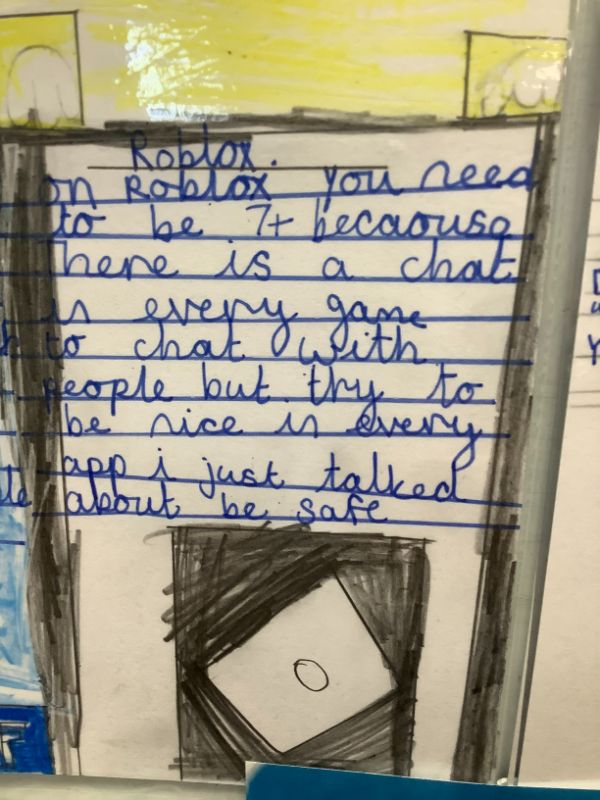 Roblox.
on Roblox you need
to be 7+ becaouse
There is a chat
in every game
to chat with
people but thy to
be nice in every
app i just talked
about be safe